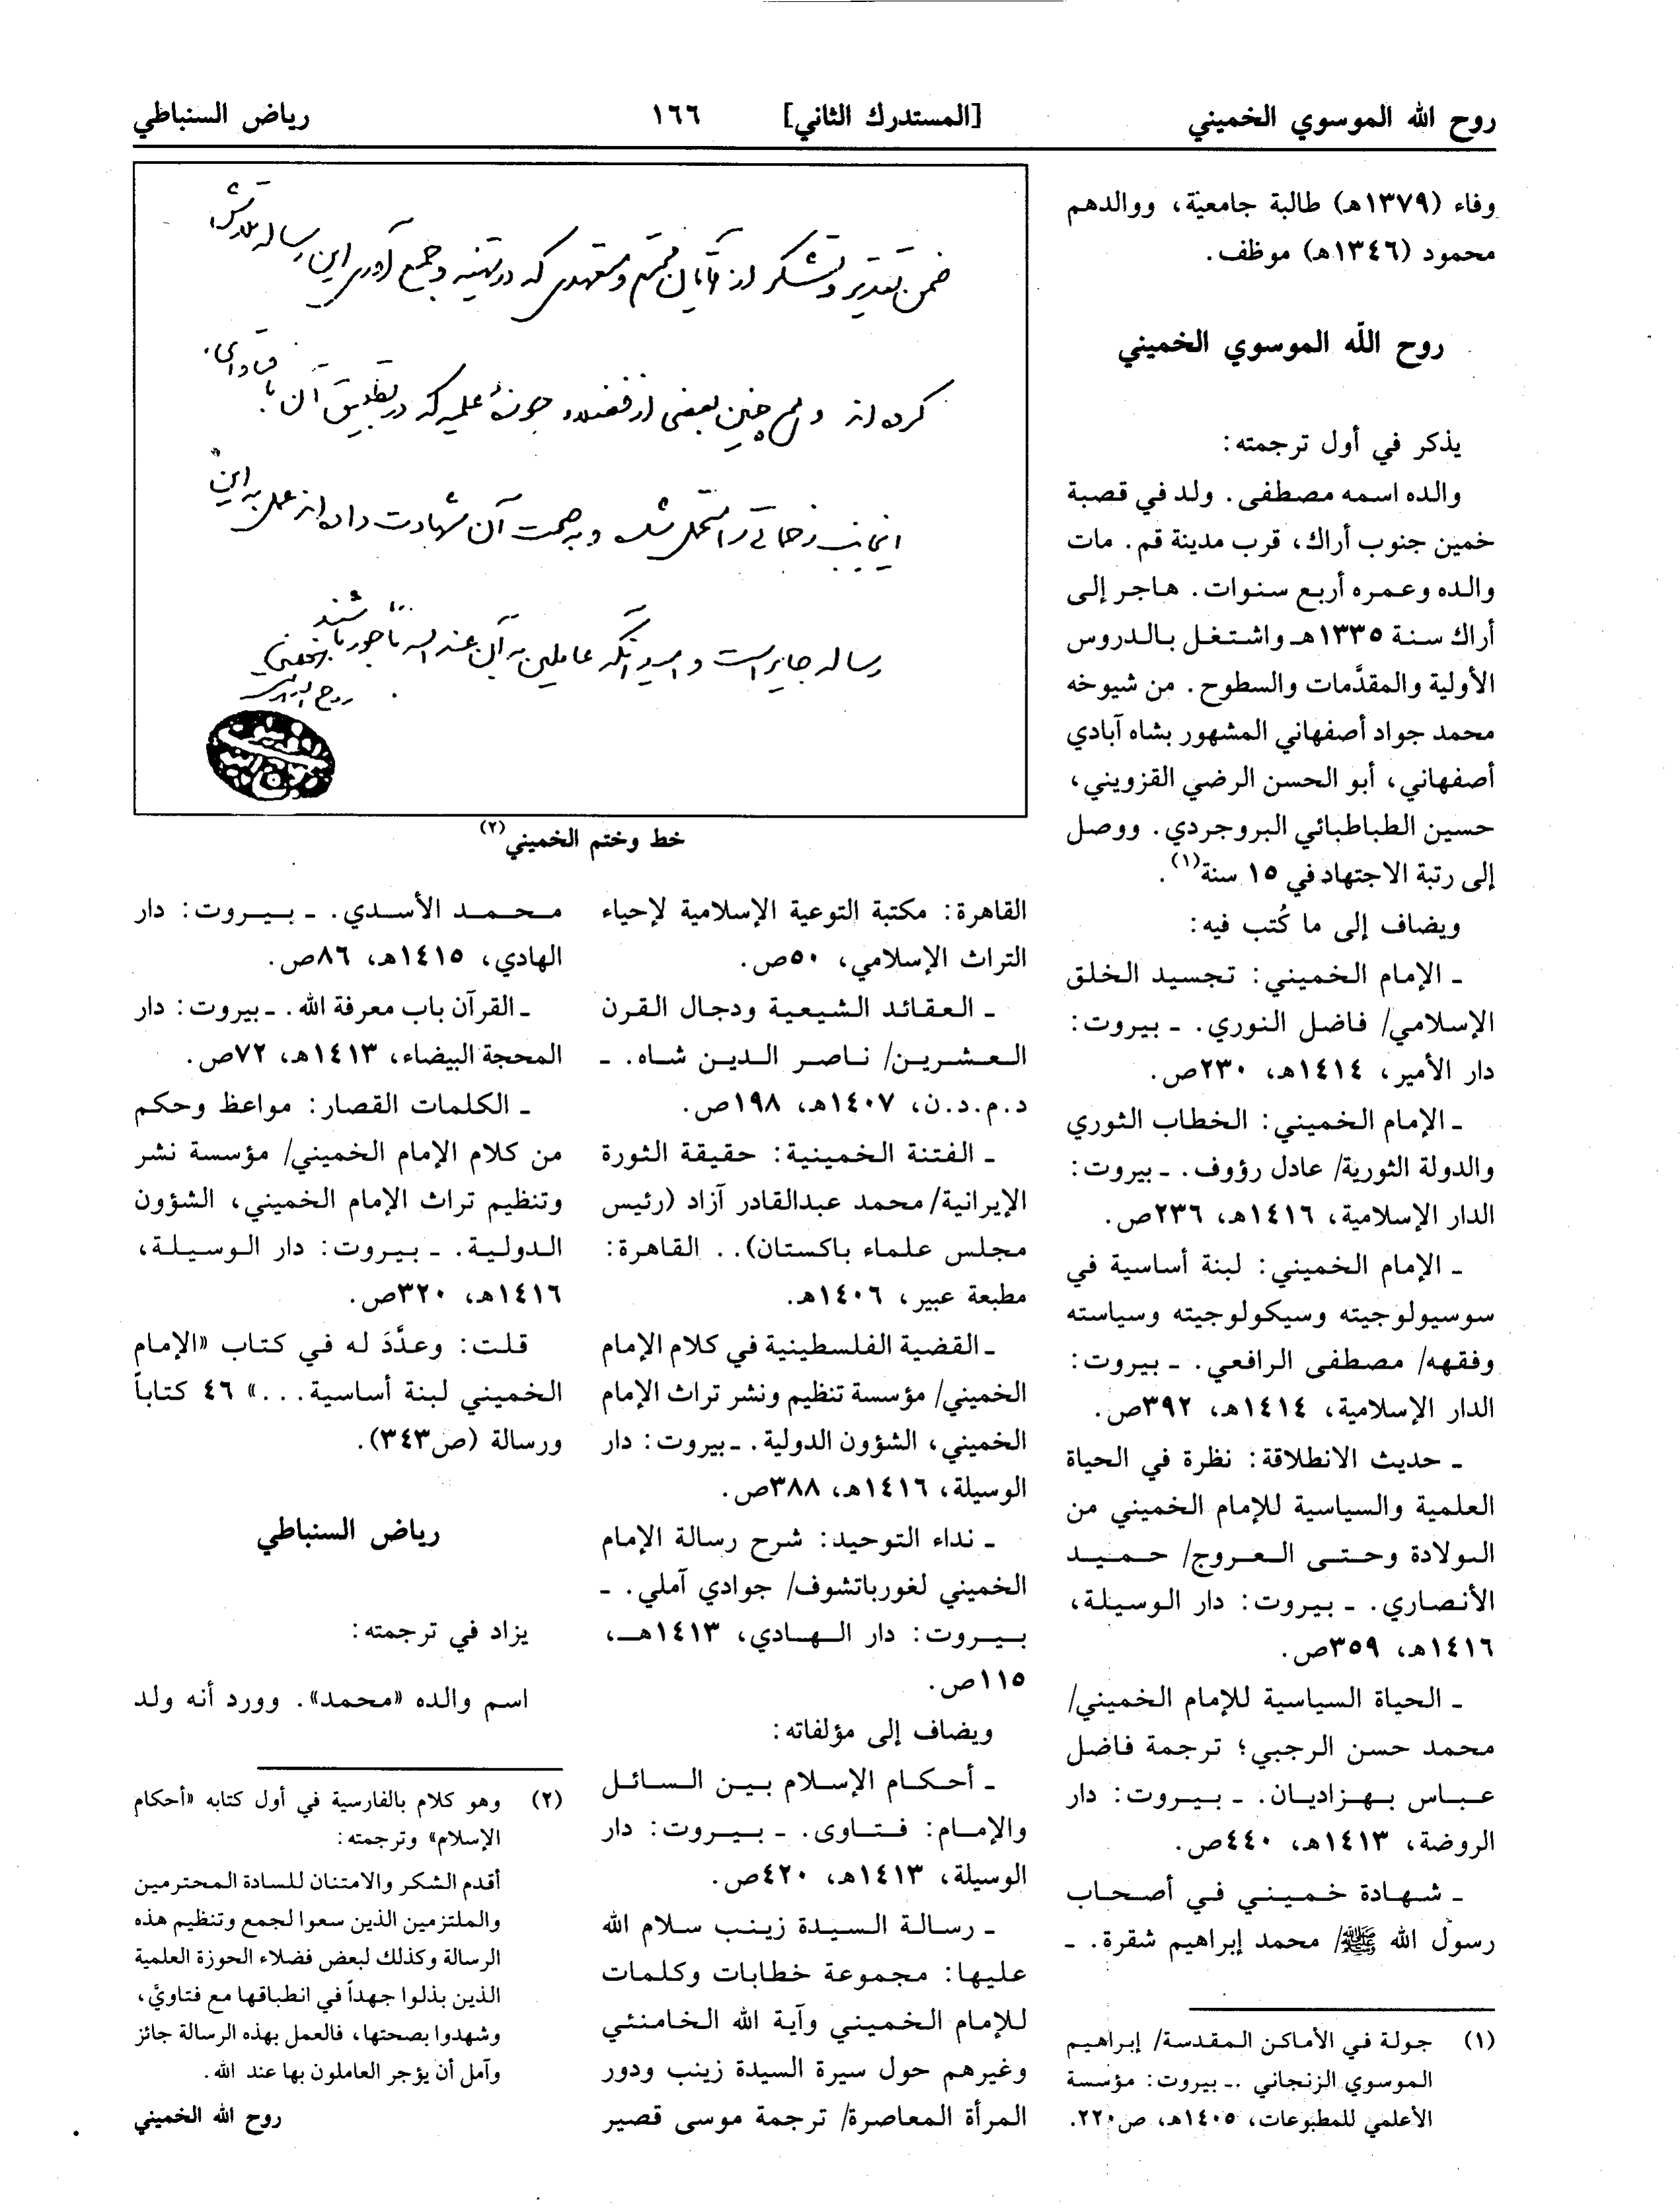 روح الله الموسوي الخميني
[المستدرك الثاني]
١٦٦
رياض السنباطي
وفاء (١٣٧٩هـ) طالبة جامعية، ووالدهم
محمود (١٣٤٦هـ) موظف.
روح الله الموسوي الخميني
يذكر في أول ترجمته:
والده اسمه مصطفى. ولد في قصبة
خمين جنوب أراك، قرب مدينة قم. مات
والده وعمره أربع سنوات. هاجر إلى
أراك سنة ١٣٣٥هـ واشتغل بالدروس
الأولية والمقدَّمات والسطوح. من شيوخه
محمد جواد أصفهاني المشهور بشاه آبادي
أصفهاني، أبو الحسن الرضي القزويني،
حسين الطباطبائي البروجردي. ووصل
إلى رتبة الاجتهاد في ١٥ سنة(١).
ويضاف إلى ما كُتب فيه:
ـ الإمام الخميني: تجسيد الخلق
الإسلامي/ فاضل النوري. ـ بيروت:
دار الأمير، ١٤١٤هـ، ٢٣٠ص.
ـ الإمام الخميني: الخطاب الثوري
والدولة الثورية/ عادل رؤوف. ـ بيروت:
الدار الإسلامية، ١٤١٦هـ، ٢٣٦ص.
ـ الإمام الخميني: لبنة أساسية في
سوسيولوجيته وسيكولوجيته وسياسته
وفقهه/ مصطفى الرافعي. ـ بيروت:
الدار الإسلامية، ١٤١٤هـ، ٣٩٢ص.
ـ حديث الانطلاقة: نظرة في الحياة
العلمية والسياسية للإمام الخميني من
الولادة وحتى العروج/ حميد
الأنصاري. ـ بيروت: دار الوسيلة،
١٤١٦هـ، ٣٥٩ص.
ـ الحياة السياسية للإمام الخميني/
محمد حسن الرجبي؛ ترجمة فاضل
عباس بهزاديان. ـ بيروت: دار
الروضة، ١٤١٣هـ، ٤٤٠ص.
ـ شهادة خميني في أصحاب
رسول الله ﷺ/ محمد إبراهيم شقرة. ـ
(١) جولة في الأماكن المقدسة/ إبراهيم
الموسوي الزنجاني .ـ بيروت: مؤسسة
الأعلمي للمطبوعات، ١٤٠٥هـ، ص٢٢٠.
ضمن تقدیر و تشکر از آقایان محترم و متعهدی که در تهیه و جمع آوری این رساله تلاش
کرده اند و هم چنین بعضی از فضلاء حوزهٔ علمیه که در تطبیق آن با فتاوای
اینجانب زحماتی را متحمل شده و به صحت آن شهادت داده اند عمل به این
رساله جایز است و امید آنکه عاملین به آن عند الله مأجور باشند
روح الله الموسوی الخمینی
خط وختم الخميني(٢)
القاهرة: مكتبة التوعية الإسلامية لإحياء
التراث الإسلامي، ٥٠ص.
ـ العقائد الشيعية ودجال القرن
العشرين/ ناصر الدين شاه. ـ
د.م.د.ن، ١٤٠٧هـ، ١٩٨ص.
ـ الفتنة الخمينية: حقيقة الثورة
الإيرانية/ محمد عبدالقادر آزاد (رئيس
مجلس علماء باكستان).. القاهرة:
مطبعة عبير، ١٤٠٦هـ.
ـ القضية الفلسطينية في كلام الإمام
الخميني/ مؤسسة تنظيم ونشر تراث الإمام
الخميني، الشؤون الدولية. ـ بيروت: دار
الوسيلة، ١٤١٦هـ، ٣٨٨ص.
ـ نداء التوحيد: شرح رسالة الإمام
الخميني لغورباتشوف/ جوادي آملي. ـ
بيروت: دار الهادي، ١٤١٣هـ،
١١٥ص.
ويضاف إلى مؤلفاته:
ـ أحكام الإسلام بين السائل
والإمام: فتاوى. ـ بيروت: دار
الوسيلة، ١٤١٣هـ، ٤٢٠ص.
ـ رسالة السيدة زينب سلام الله
عليها: مجموعة خطابات وكلمات
للإمام الخميني وآية الله الخامنئي
وغيرهم حول سيرة السيدة زينب ودور
المرأة المعاصرة/ ترجمة موسى قصير
محمد الأسدي. ـ بيروت: دار
الهادي، ١٤١٥هـ، ٨٦ص.
ـ القرآن باب معرفة الله. ـ بيروت: دار
المحجة البيضاء، ١٤١٣هـ، ٧٢ص.
ـ الكلمات القصار: مواعظ وحكم
من كلام الإمام الخميني/ مؤسسة نشر
وتنظيم تراث الإمام الخميني، الشؤون
الدولية. ـ بيروت: دار الوسيلة،
١٤١٦هـ، ٣٢٠ص.
قلت: وعدَّدَ له في كتاب «الإمام
الخميني لبنة أساسية...» ٤٦ كتاباً
ورسالة (ص٣٤٣).
رياض السنباطي
يزاد في ترجمته:
اسم والده «محمد». وورد أنه ولد
(٢) وهو كلام بالفارسية في أول كتابه «أحكام
الإسلام» وترجمته:
أقدم الشكر والامتنان للسادة المحترمين
والملتزمين الذين سعوا لجمع وتنظيم هذه
الرسالة وكذلك لبعض فضلاء الحوزة العلمية
الذين بذلوا جهداً في انطباقها مع فتاويَّ،
وشهدوا بصحتها، فالعمل بهذه الرسالة جائز
وآمل أن يؤجر العاملون بها عند الله.
روح الله الخميني